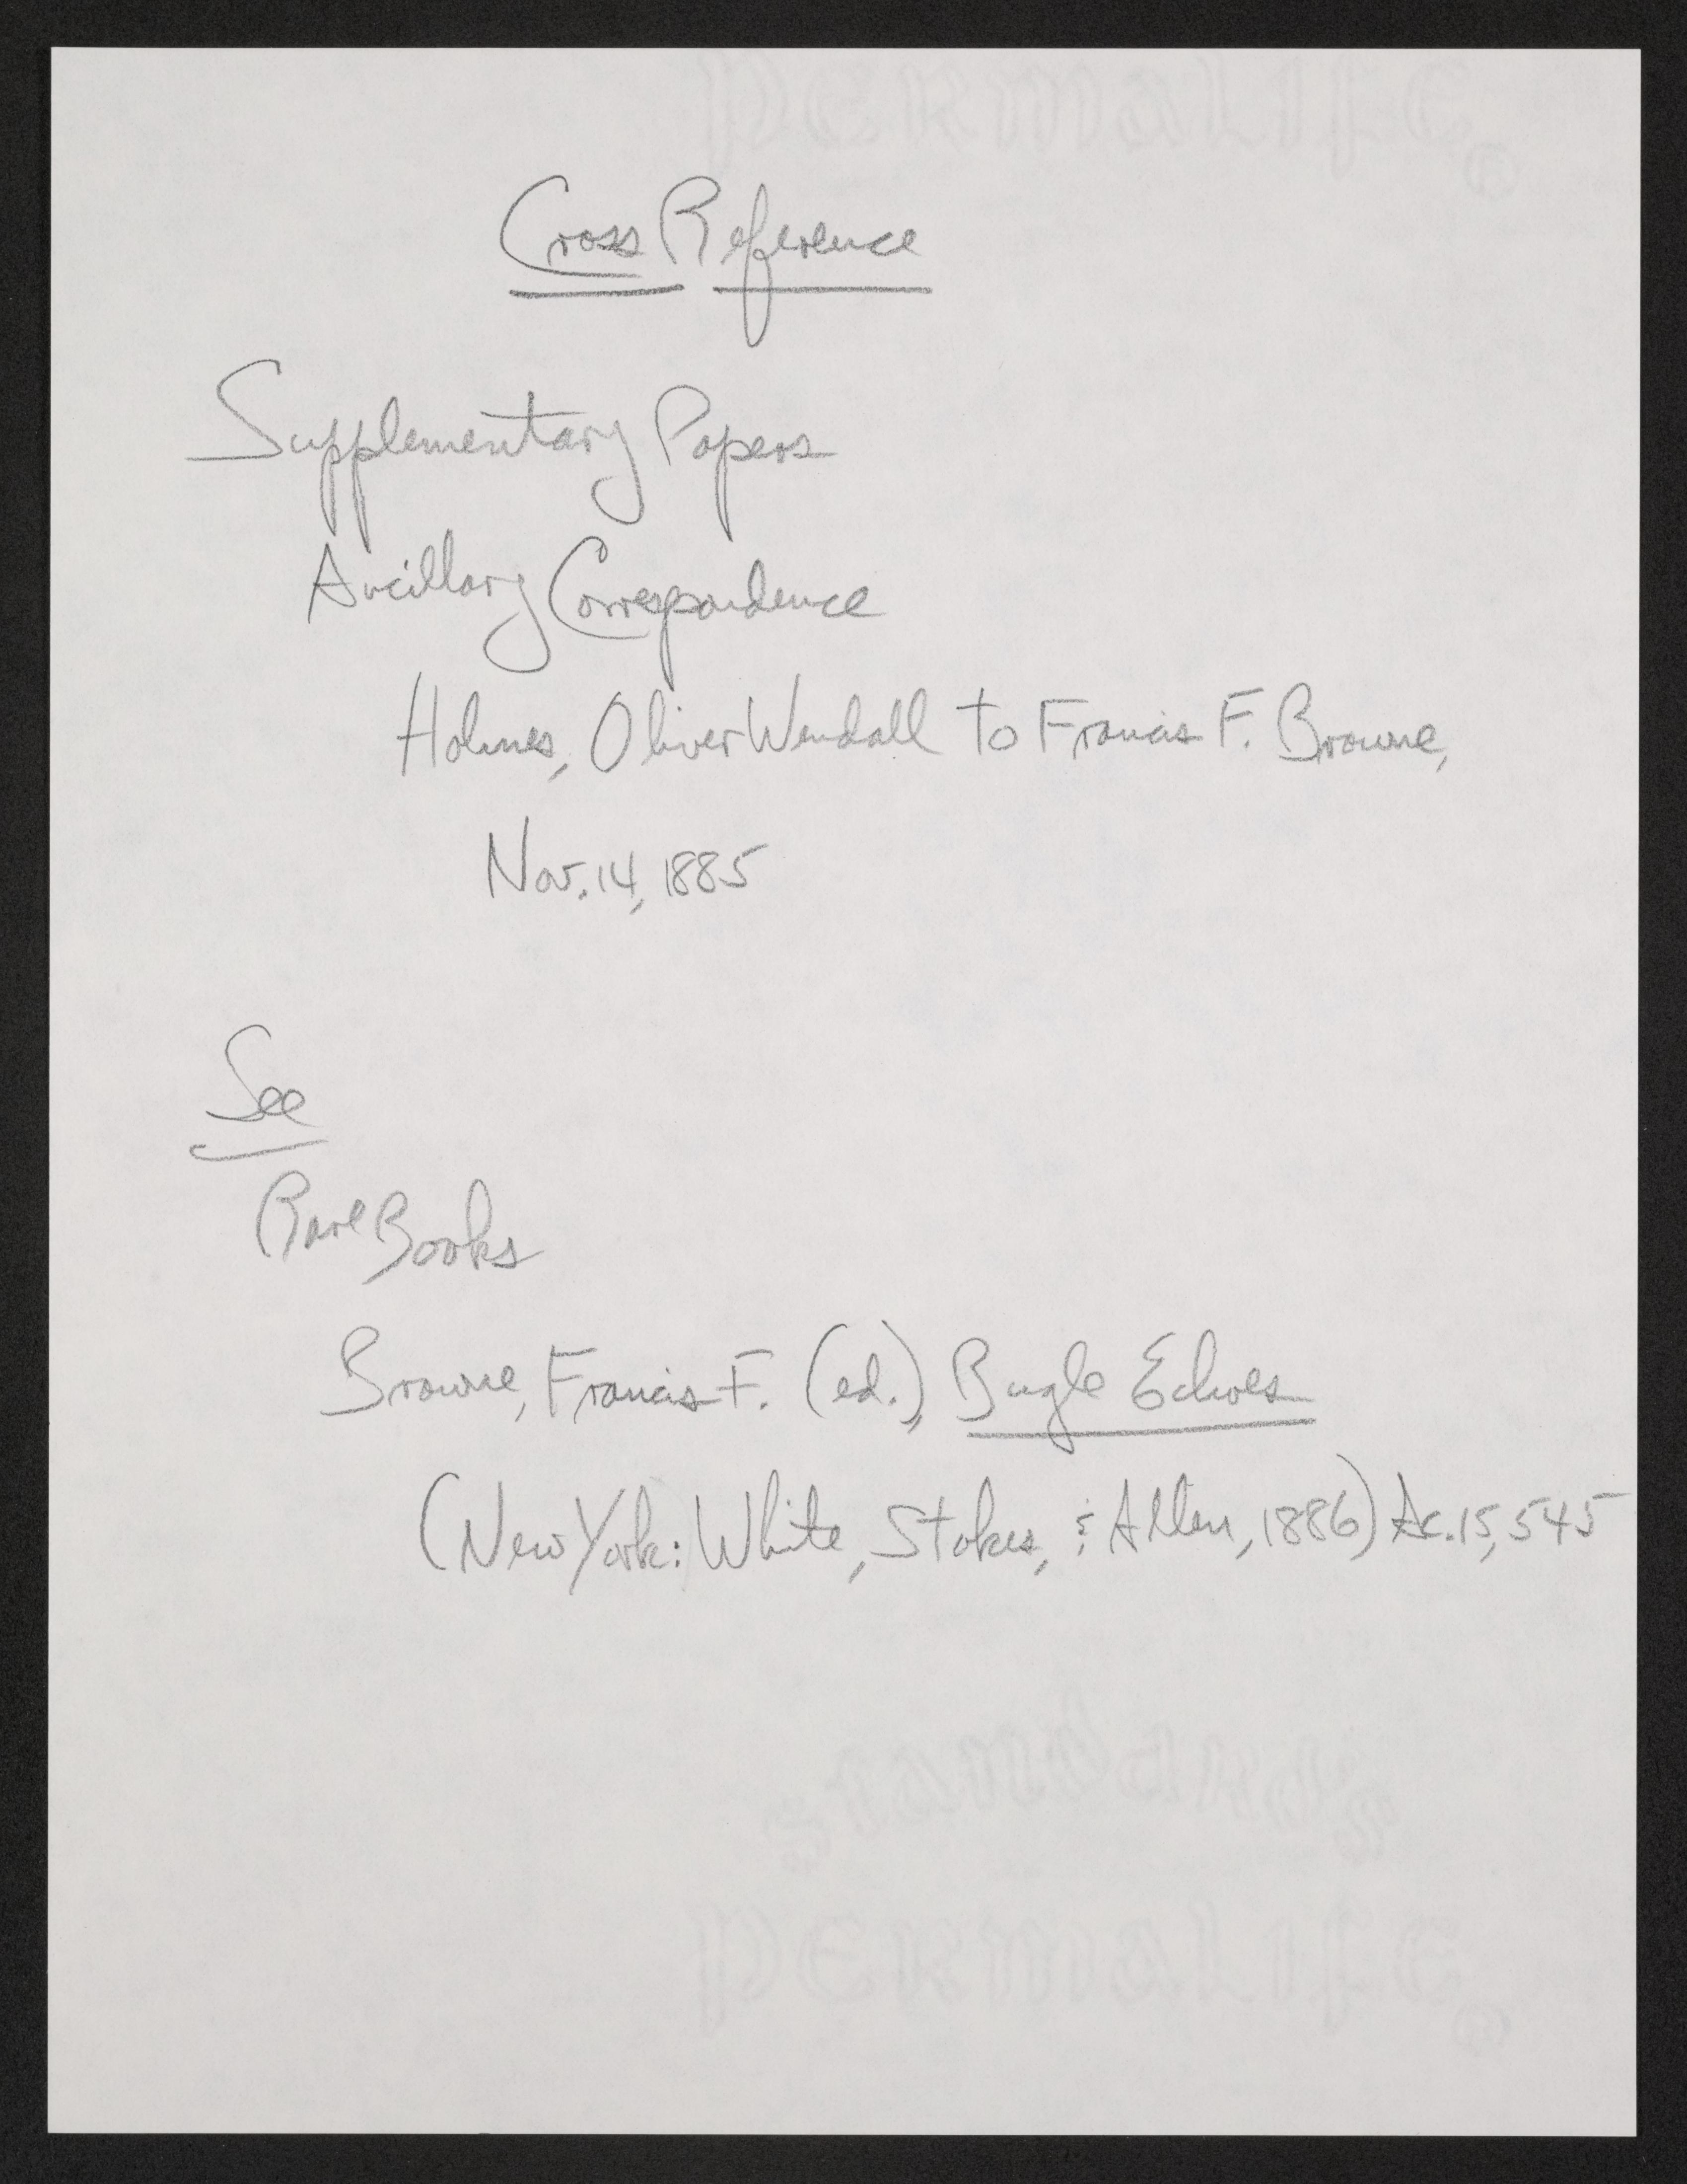 Cross Reference
Supplementary Papers
Ancillary Correspondence
Holmes, Oliver Wendall to Francis F. Browne,
Nov. 14, 1885
See
Rare Books
Browne, Francis F. (ed.), Bugle Echoes
(New York: White, Stokes, & Allen, 1886) Ac. 15,545